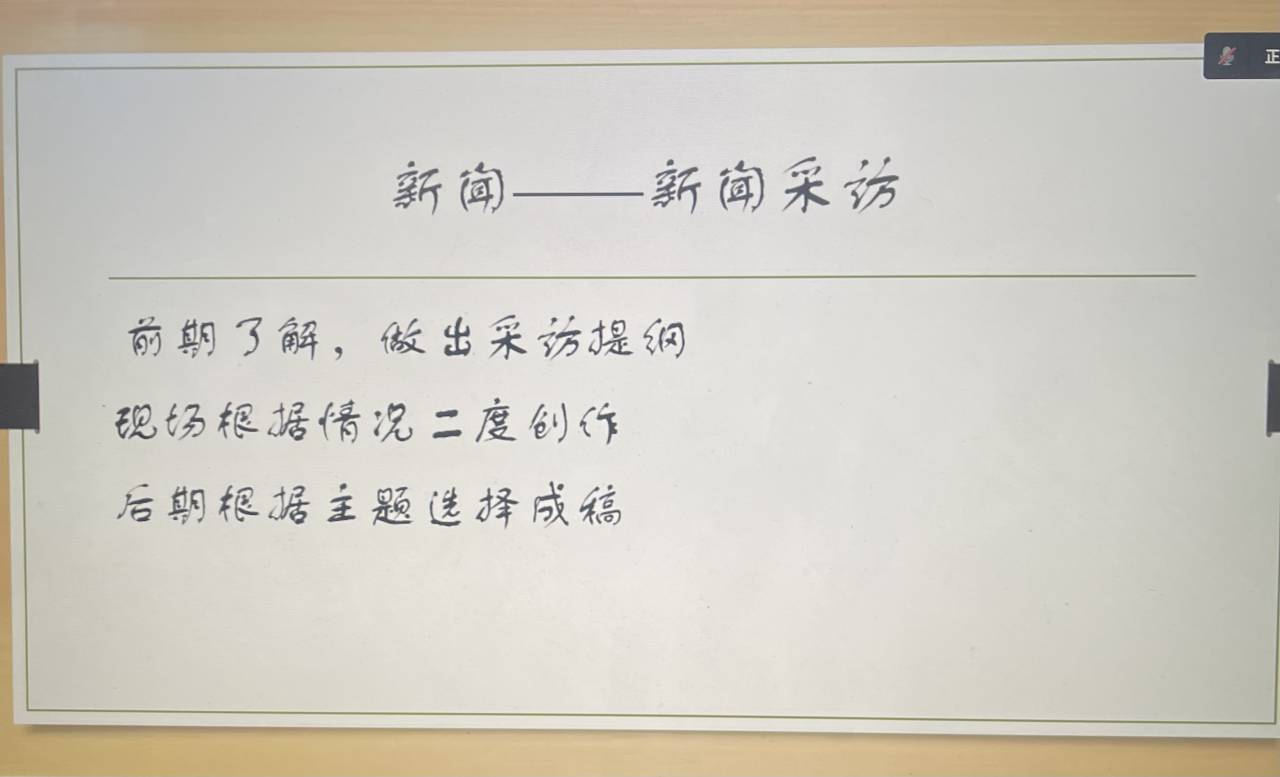 正
新闻——新闻采访
前期了解，做出采访提纲
现场根据情况二度创作
后期根据主题选择成稿